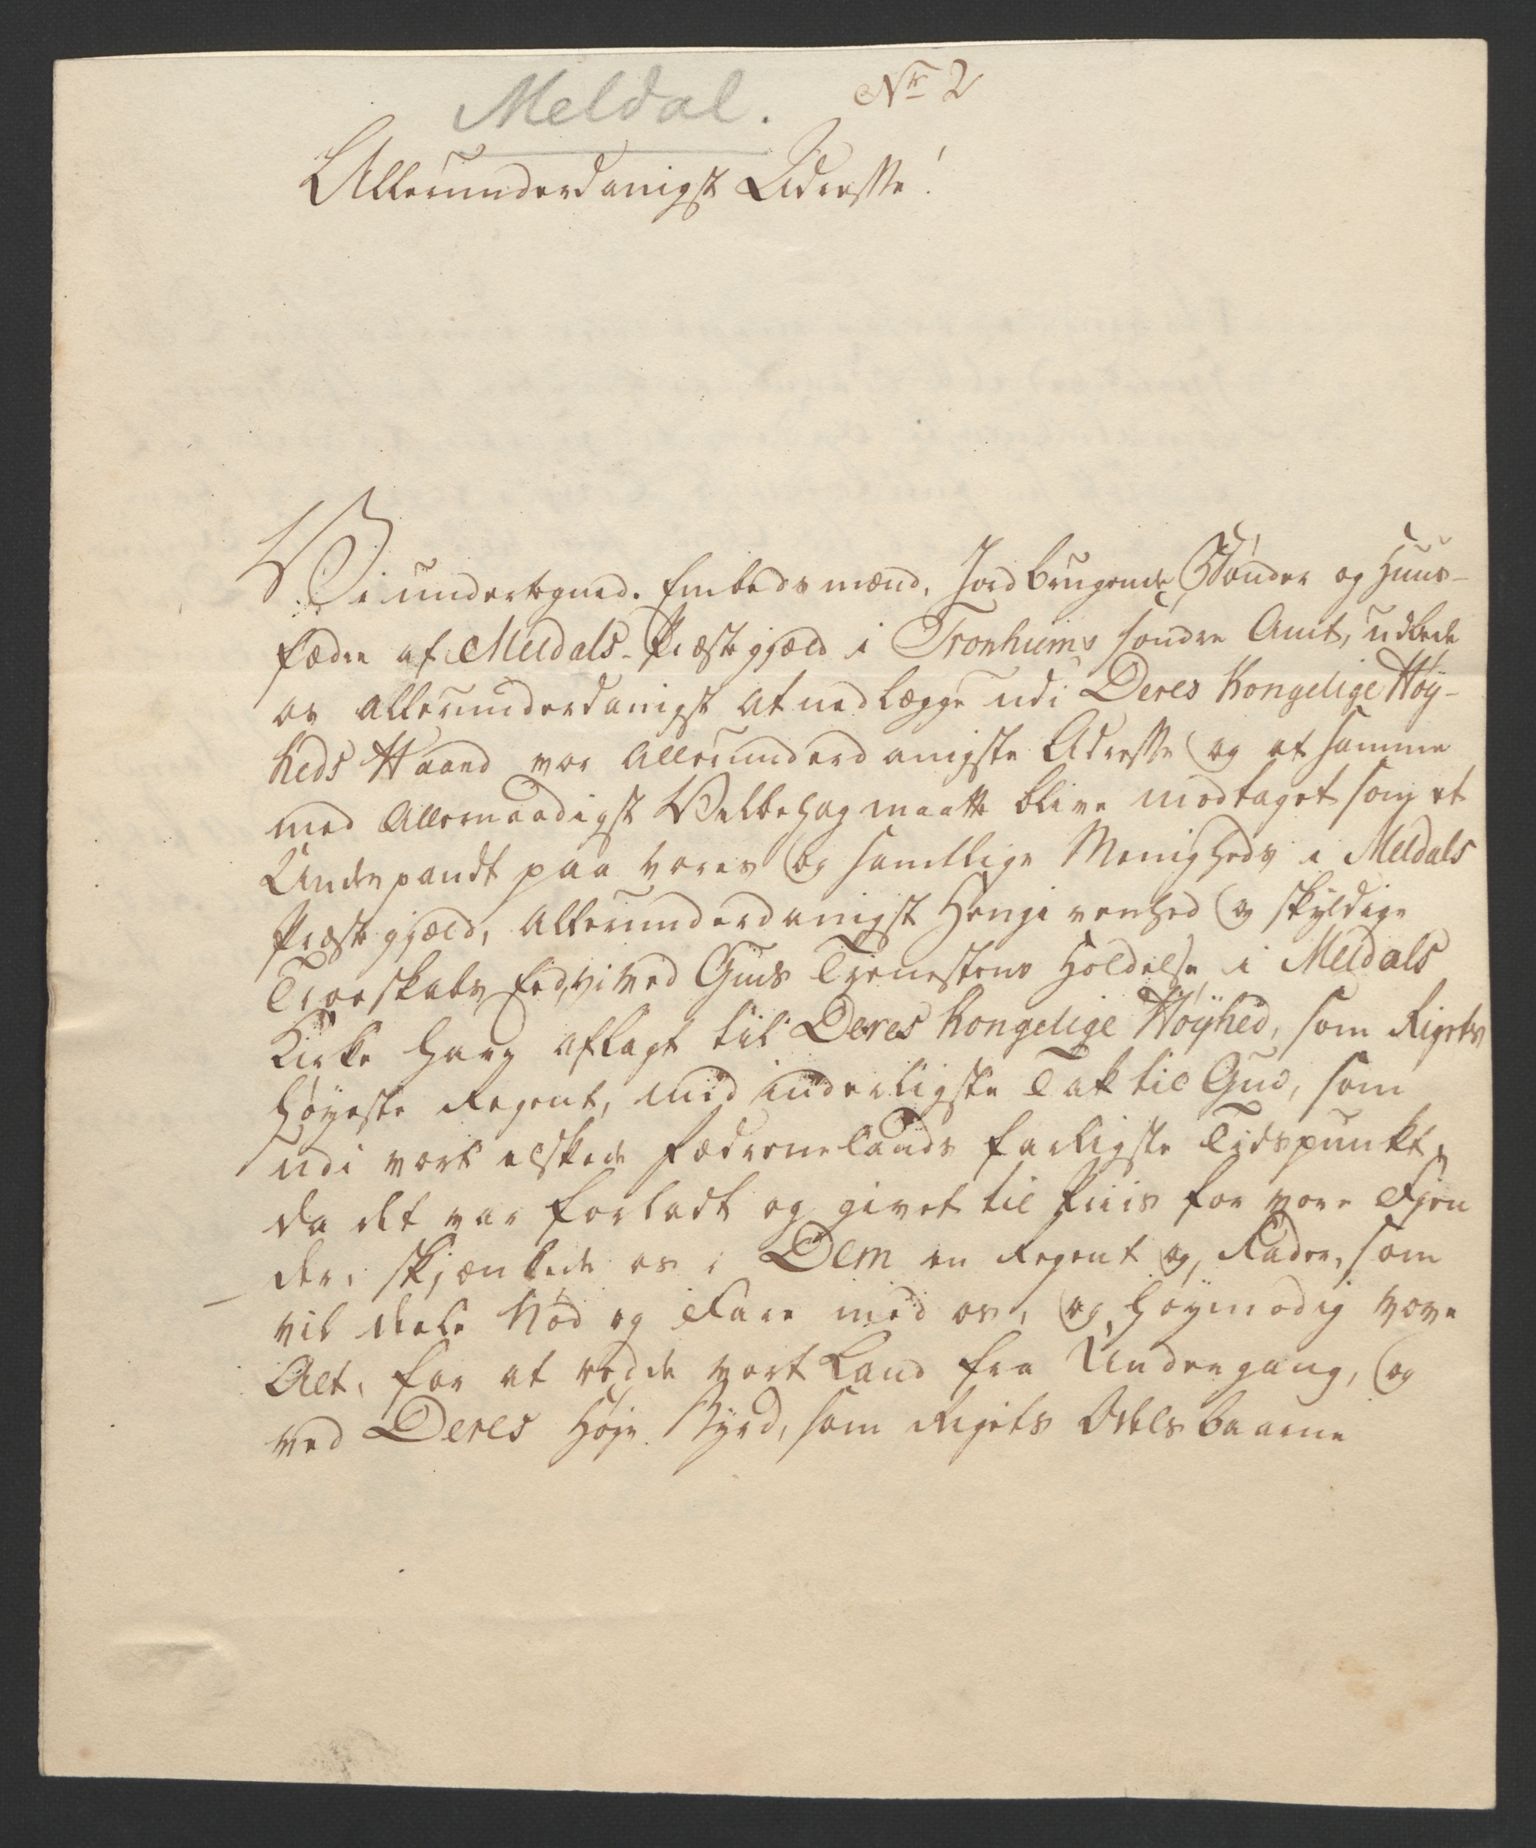 Meldal. Nr 2
Allerunderdanigst Adresse!
Vi undertegned. Embedsmænd, Jordbrugende Bønder og Huus-
fædre af Meldals Præstegjæld i Tronhiems søndre Amt, udbede
os allerunderdanigst at nedlægge udi Deres Kongelige Høy-
heds Haand vor allerunderdanigste Adresse og at samme
med Allernaadigst Velbehag maatte blive modtaget som et
Underpandt paa vores og samtlige Menigheds i Meldals
Præstegjæld, allerunderdanigst Hengivenhed og skyldige
Troeskabs Eed, vi ved Guds Tjenestens Holdelse i Meldals
Kirke have aflagt til Deres Kongelige Høyhed, som Rigets
høyeste Regent, med inderligste Tak til Gud, som
udi vort elskede Fædrenelands farligste Tidspunkt,
da det var forladt og givet til Priis for vore Fjen
der, skjænkede os i Dem en Regent og Fader, som
vil deele Nød og Fare med os, og høymodig vove
Alt, for at redde vort Land fra Undergang, og
ved Deres Høje Byrd, som Rigets Odelsbaarne